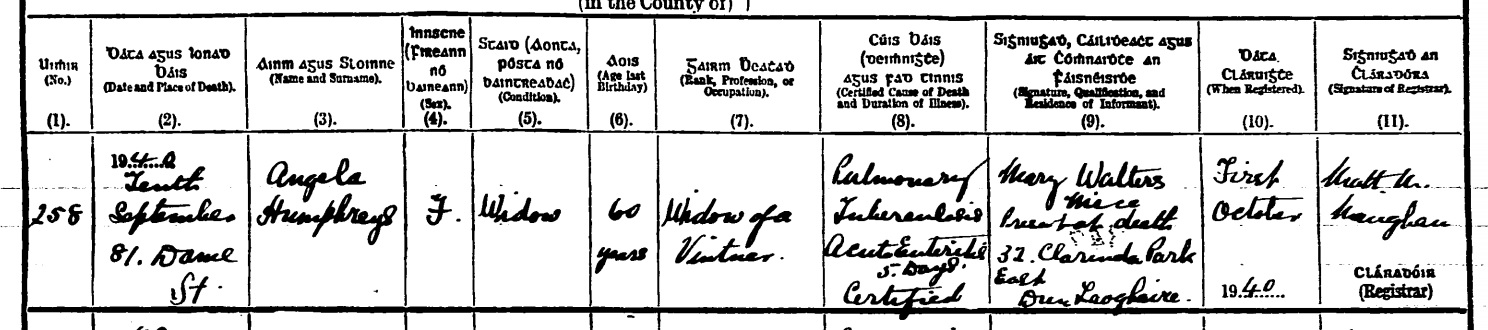 (in the County of) )
Uimhir
(No.)
(1).
Dáta agus Ionad
Báis
(Date and Place of Death).
(2).
Ainm agus Sloinne
(Name and Surname).
(3).
Innscne
(Fireann
nó
Baineann)
(Sex).
(4).
Staid (Aonta,
pósta nó
baintreabhach)
(Condition).
(5).
Aois
(Age last
Birthday)
(6)
Gairm Beatha
(Rank, Profession, or
Occupation).
(7).
Cúis Báis
(Deimhnighthe)
agus fad tinnis
(Certified Cause of Death
and Duration of Illness).
(8).
Sighniughadh, Cáilidheacht agus
Áit Chomhnaidhthe an
Fháisnéisidhe
(Signature, Qualification, and
Residence of Informant).
(9).
Dáta
Cláruighthe
(When Registered).
(10).
Sighniughadh an
Chláradóra
(Signature of Registrar).
(11).
258
1940
Tenth
September
81. Dame
St.
Angela
Humphreys
F.
Widow
60
years
Widow of a
Vintner.
Pulmonary
Tuberculosis
Acute Enteritis
5. Days.
Certified
Mary Walters
Niece
Present at death
32. Clarinda Park
East
Dun Laoghaire.
First
October
1940.
Matt. M.
Maughan
Cláradóir
(Registrar)